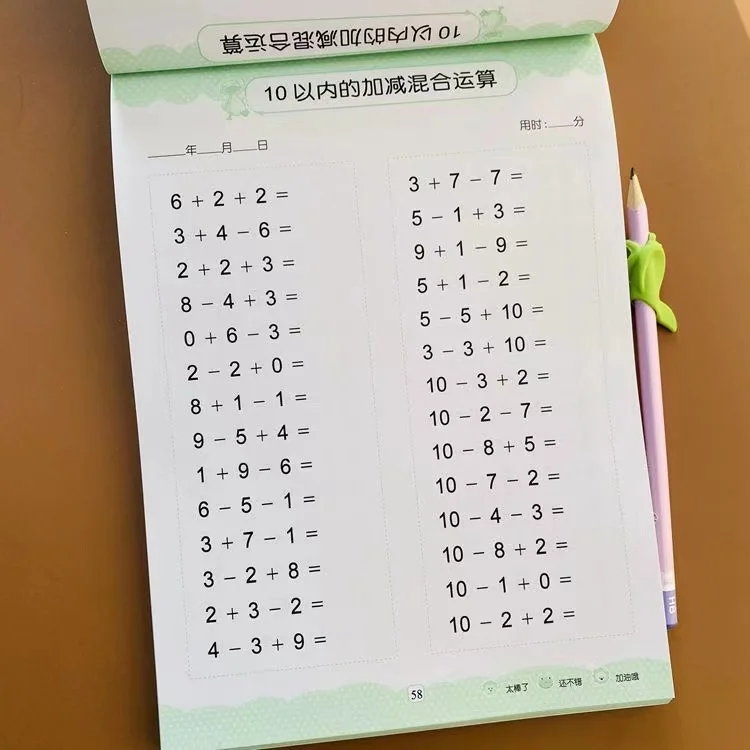 10以内的加减混合运算
10以内的加减混合运算
____年____月____日
用时:____分
6 + 2 + 2 =
3 + 4 − 6 =
2 + 2 + 3 =
8 − 4 + 3 =
0 + 6 − 3 =
2 − 2 + 0 =
8 + 1 − 1 =
9 − 5 + 4 =
1 + 9 − 6 =
6 − 5 − 1 =
3 + 7 − 1 =
3 − 2 + 8 =
2 + 3 − 2 =
4 − 3 + 9 =
3 + 7 − 7 =
5 − 1 + 3 =
9 + 1 − 9 =
5 + 1 − 2 =
5 − 5 + 10 =
3 − 3 + 10 =
10 − 3 + 2 =
10 − 2 − 7 =
10 − 8 + 5 =
10 − 7 − 2 =
10 − 4 − 3 =
10 − 8 + 2 =
10 − 1 + 0 =
10 − 2 + 2 =
58
太棒了 还不错 加油哦
HB